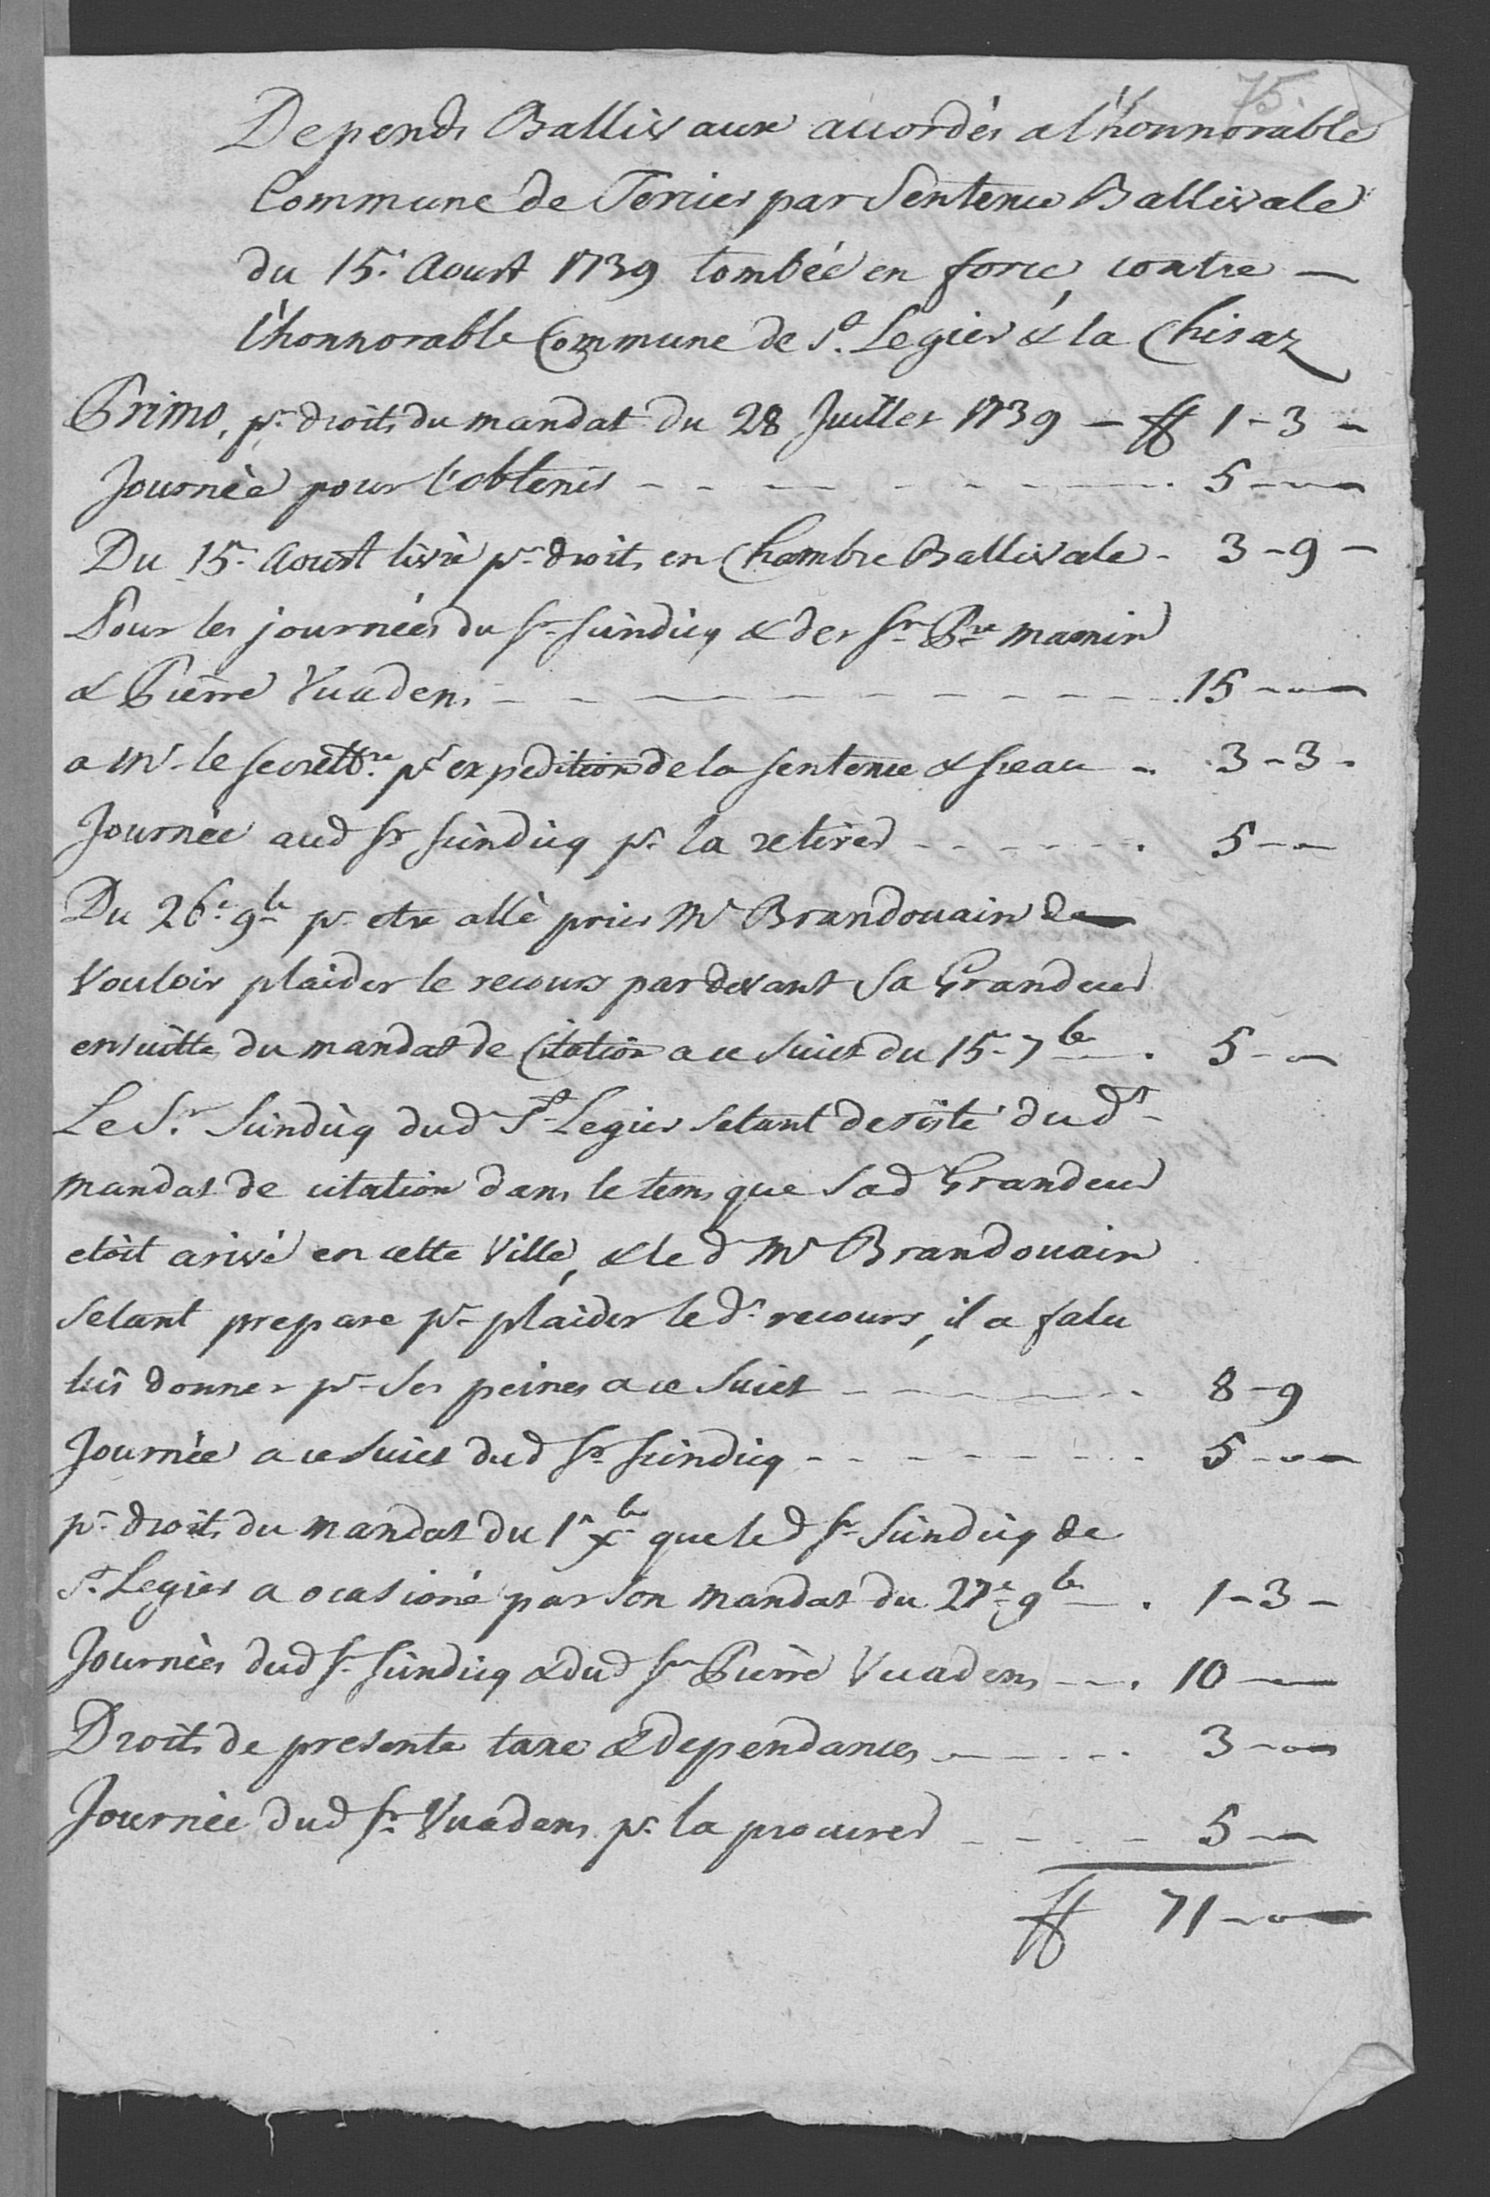 75.
Depends Ballivaux accordés a l'honnorable
Commune de Tercier par Sentence Ballivale
du 15.e Aoust 1739 tombée en force, contre —
l'honnorable Commune de St. Legier & la Chisaz
Primo, pr. droits du mandat du 28 Juillet 1739 — ff 1-3-
Journée pour l'obtenir - - - - - - - 5 - - -
Du 15e Aoust livré pr. droits en Chambre Ballivale - 3-9-
Pour les journées du Sr. Sindicq & des Srs Pre mamin
& Pierre Vuadens - - - - - - - - - 15 - - -
a Mr. le secrettre. pr. expedition de la sentence & sceau - 3-3-
Journée aud Sr Sindicq pr. la retirer - - - - - 5 - -
Du 26e 9bre pr. etre allé prier Mr Brandouain de
Vouloir plaider le recours pardevant Sa Grandeur
ensuitte du mandat de Citation a ce Suiet du 15e 7bre . 5 - -
Le Sr. Sindicq dud St. Legier setant desisté dudt
mandat de citation dans le tems que Sad Grandeur
etoit arivé en cette Ville, & le d Mr Brandouain
setant preparé pr. plaider le dt recours, il a falu
luî donner pr. Ses peines a ce Suiet - - - - - 8-9
Journée a ce Suiet dud Sr Sindicq - - - - - - 5 - - -
pr. droits du mandat du 1r Xbre que led Sr Sindicq de
St. Legier a ocasioné par Son mandat du 27e 9bre . 1-3-
Journées dud Sr. Sindicq & dud Sr Pierre Vuadens - - . 10 —
Droits de presente taxe & dependances - - - - 3 - - -
Journée dud Sr. Vuadens pr. la procurer - - - - 5 - -
ff 71 - - -